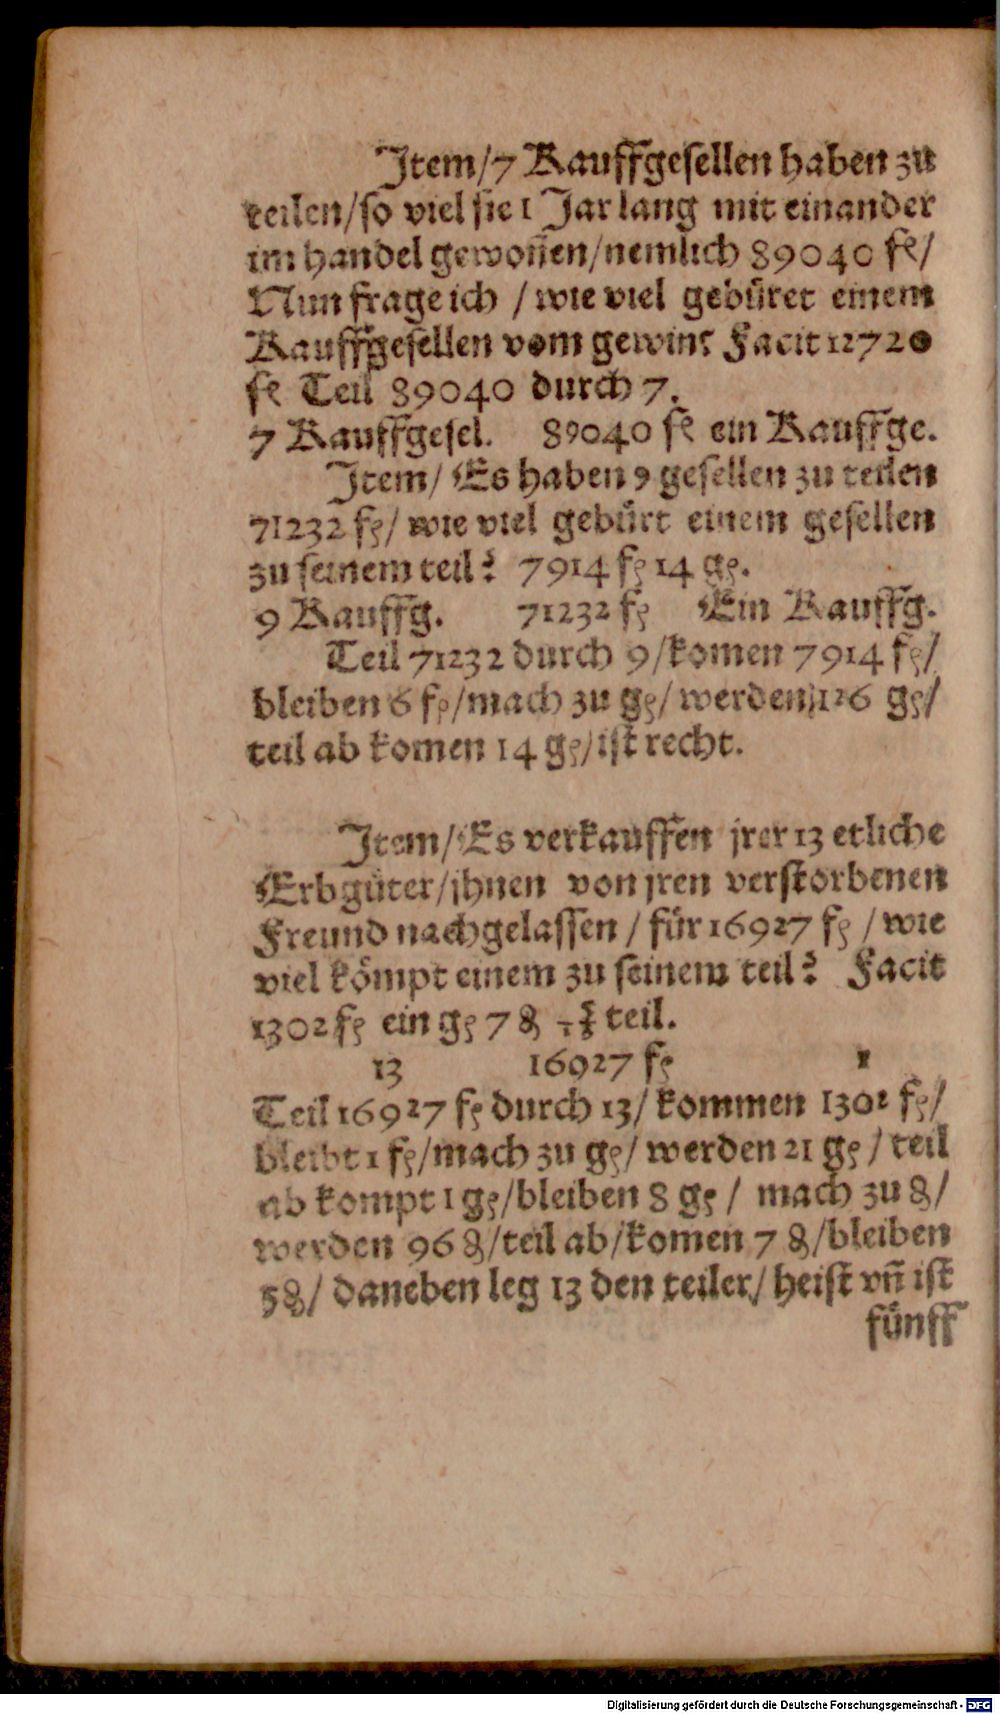 Item/7 Kauffgesellen haben zu
teilen/so viel sie 1 Jar lang mit einander
im handel gewoñen/nemlich 89040 fl/
Nun frage ich / wie viel gebüret einem
Kauffgesellen vom gewin? Facit 12720
fl Teil 89040 durch 7.
7 Kauffgesel. 89040 fl ein Kauffge.
Item/ Es haben 9 gesellen zu teilen
71232 fl/ wie viel gebürt einem gesellen
zu seinem teil? 7914 fl 14 gl.
9 Kauffg. 71232 fl Ein Kauffg.
Teil 71232 durch 9/komen 7914 fl/
bleiben 6 fl/mach zu gl/ werden 126 gl/
teil ab komen 14 gl/ist recht.
Item/Es verkauffen jrer 13 etliche
Erbgüter/jhnen von jren verstorbenen
Freund nachgelassen / für 16927 fl / wie
viel kömpt einem zu seinem teil? Facit
1302 fl ein gl 7 ₰ 5/13 teil.
13 16927 fl 1
Teil 16927 fl durch 13/ kommen 1302 fl/
bleibt 1 fl/mach zu gl/ werden 21 gl / teil
ab kompt 1 gl/bleiben 8 gl / mach zu ₰/
werden 96 ₰/teil ab/komen 7 ₰/bleiben
5 ₰/ daneben leg 13 den teiler/ heist vñ ist
fünff
Digitalisierung gefördert durch die Deutsche Forschungsgemeinschaft - DFG